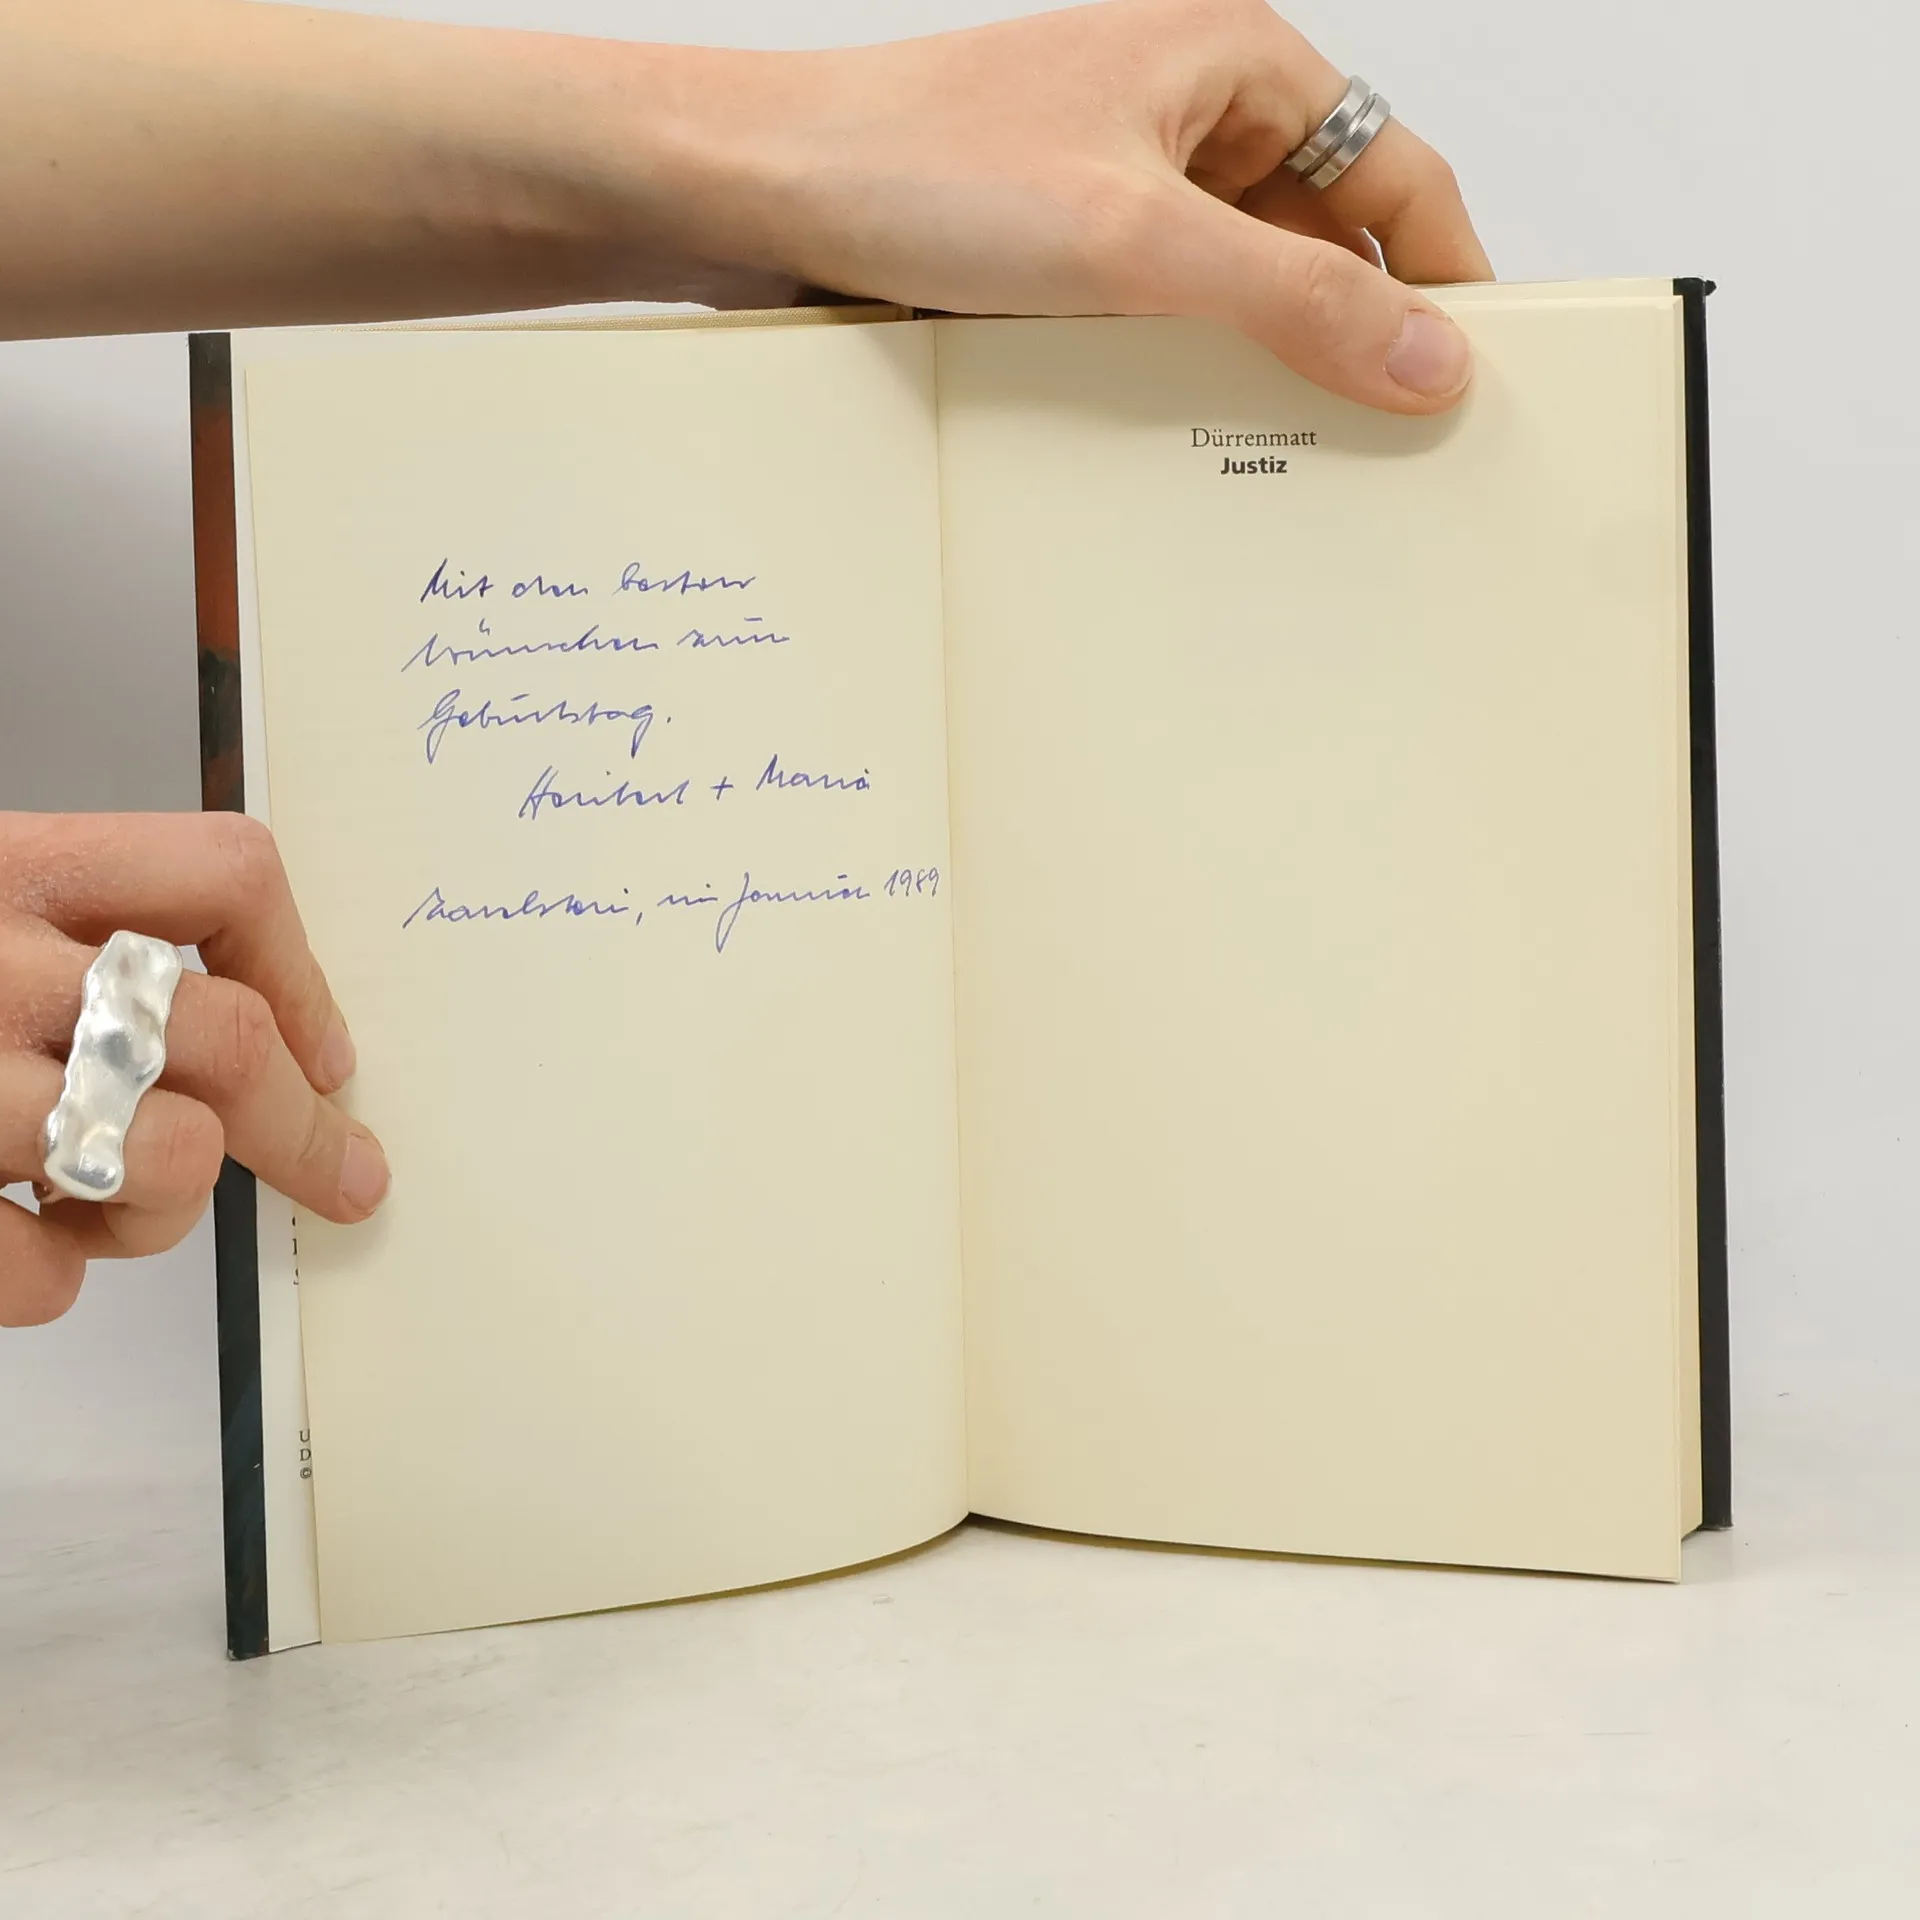 Mit den besten
Wünschen zum
Geburtstag.
Heribert + Maria
im Januar 1989
Dürrenmatt
Justiz
U
D
©